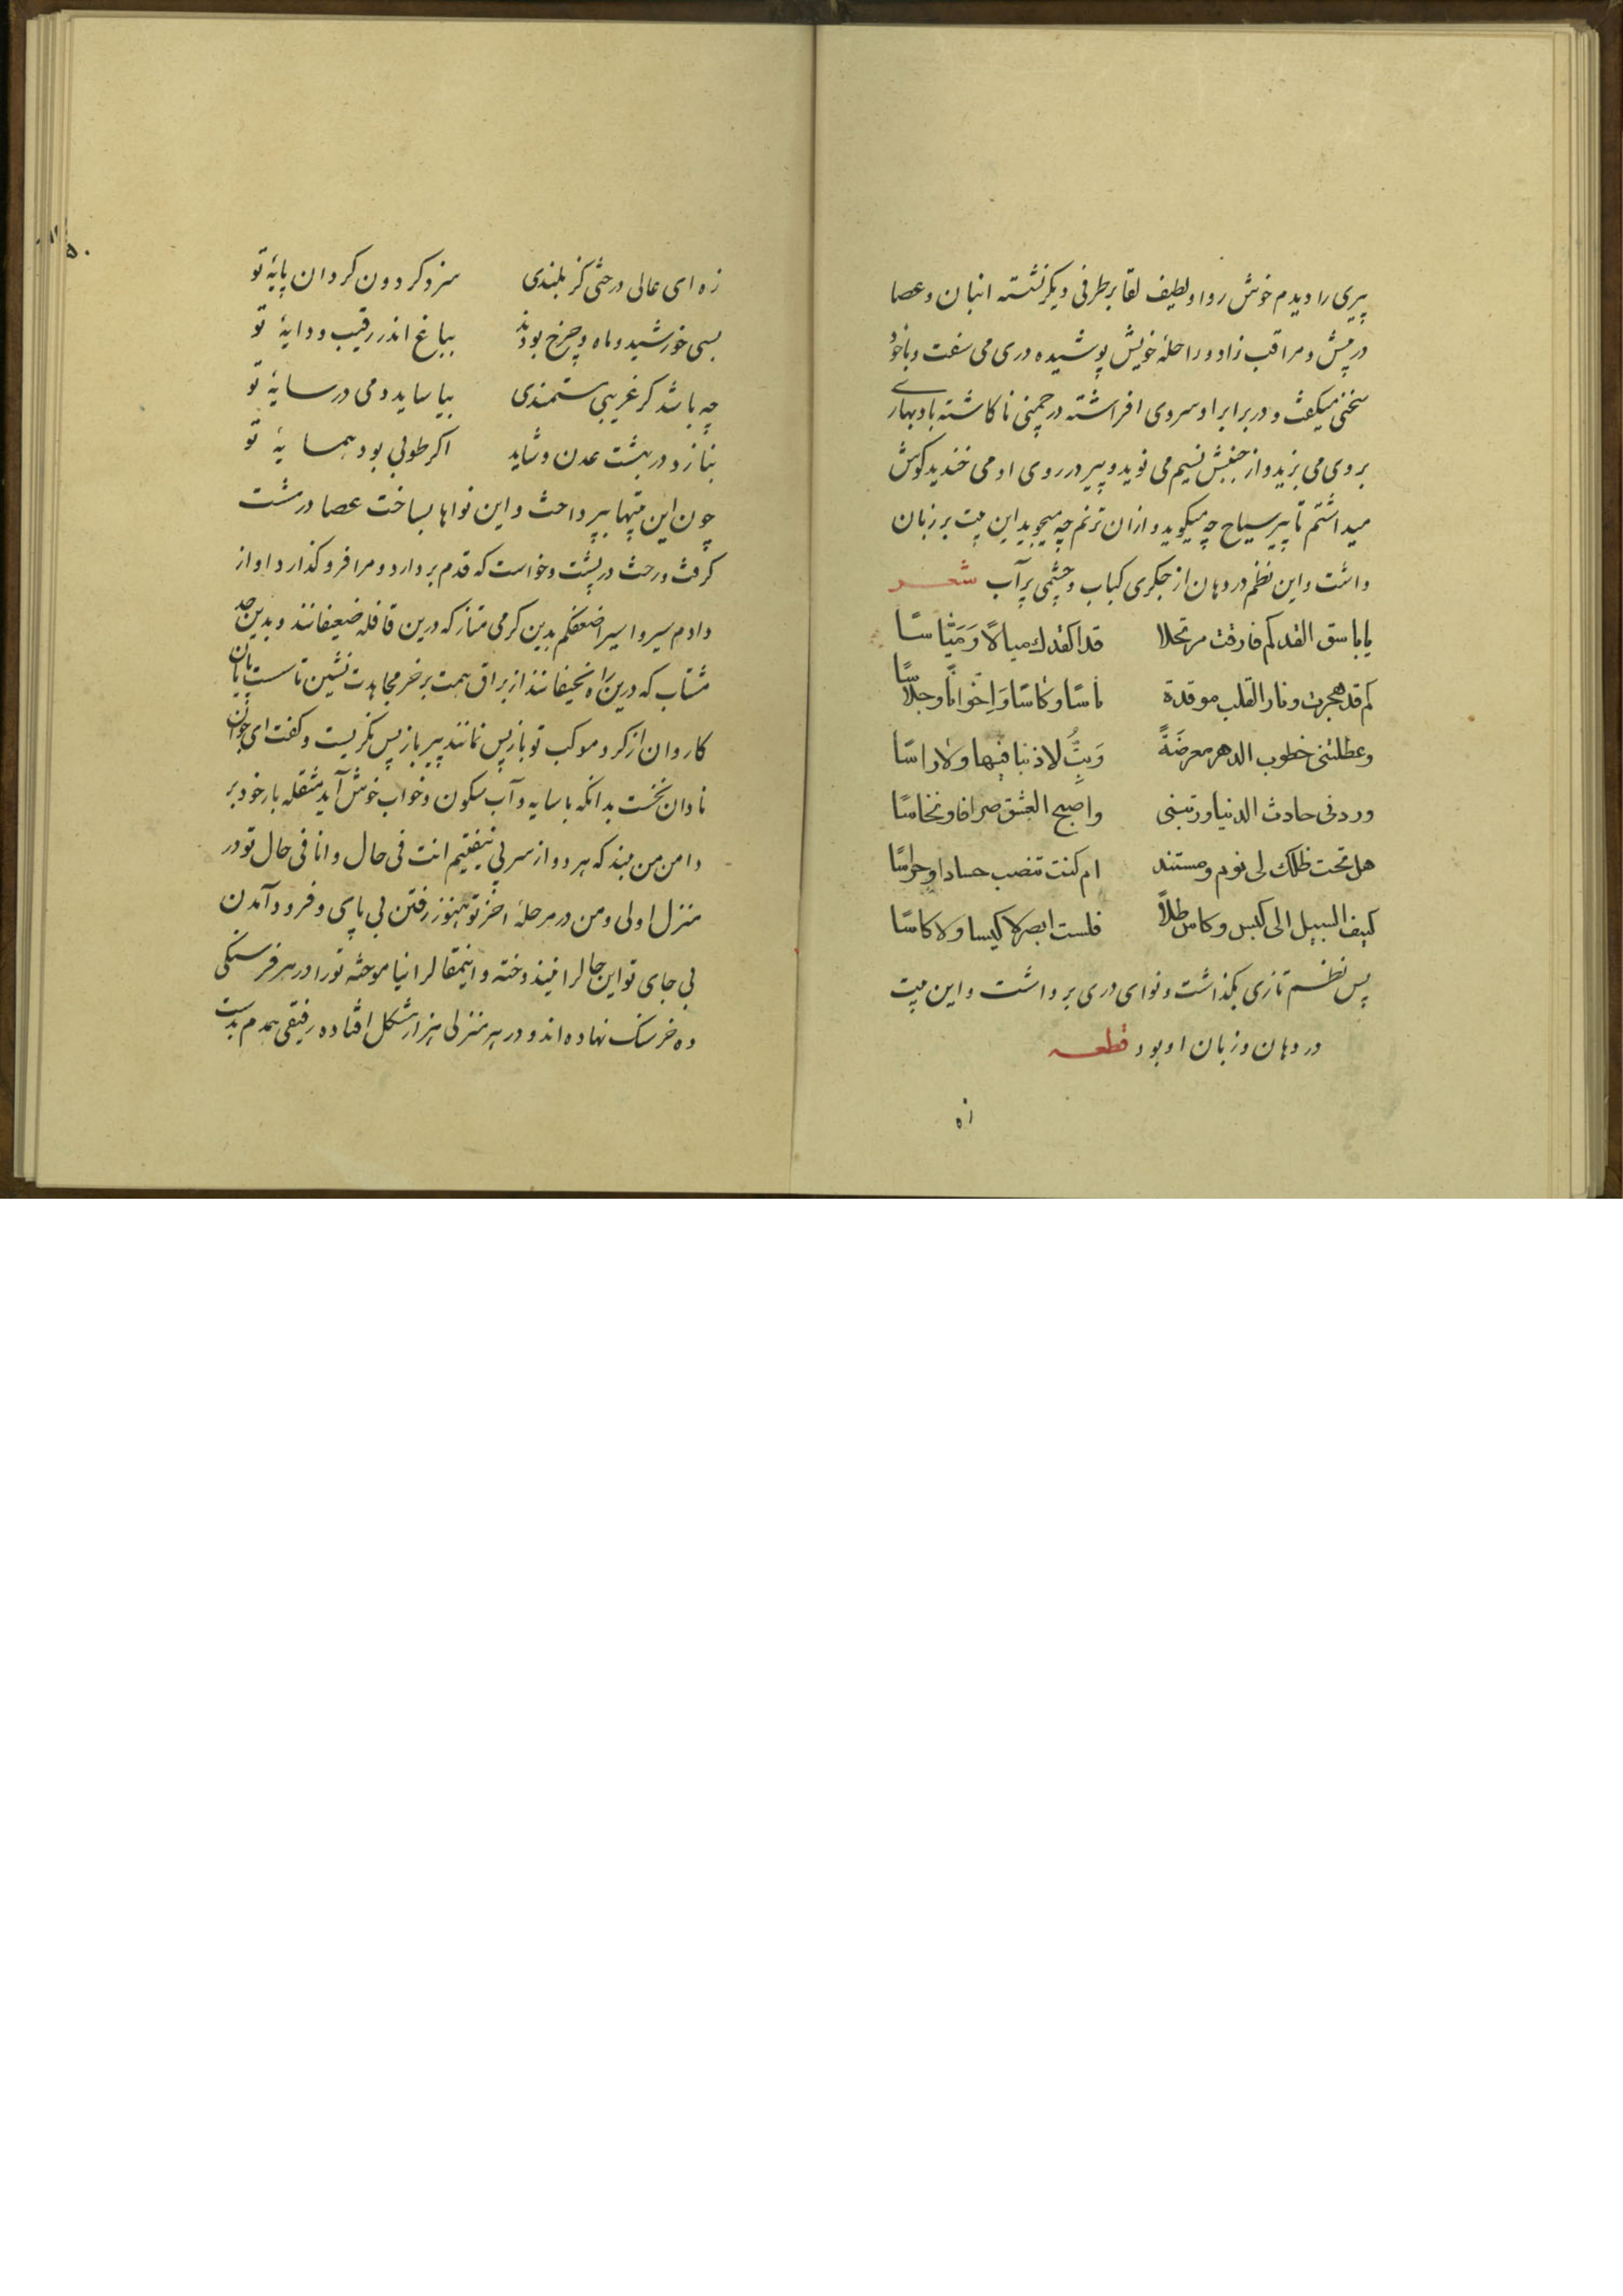 پیری را دیدم خوش روا و لطیف لقا بر طرفی دیکر نشسته انبان و عصا
در پیش و مراقب زاد و راحلهٔ خویش پوشیده دری می سفت و با خود
سخنی میکفت و در برابر او سروی افراشته در چمنی نا کاشته باد بهاری
بر وی می بزید و از جنبش نسیم می نوید و پیر در روی او می خندید کوش
میداشتم تا پیر سیاح چه میکوید و از ان ترنم چه میجوید این بیت بر زبان
داشت و این نظم در دهان از جکری کباب و چشمی پر آب شعر
یا باسق القد کم فارقت مرتحلا قدا کقدك میالًا وَمَیّاسًا
کم قد هجرت و نار القلب موقدة ناسًا و کاسًا وَاِخوانًا و جلّاسًا
و عطلتنی خطوب الدهر معرضَةً وَبِتُّ لا ذنبا فیها ولا راسًا
وردنی حادث الدنیا ورتبنی واصبح العشق صرافا و نخاسًا
هل تحت ظلك لی نوم و مستند ام کنت تنصب حسادا و حراسًا
کیف السبیل الی کیس و کاس طلاً فلست ابصر لا کیسا ولا کاسًا
پس نظم تازی بکذاشت و نوای دری برداشت و این بیت
در دهان و زبان او بود قطعه
زه
زه ای عالی درختی کز بلندی سزد کردون کردان پایهٔ تو
بسی خورشید و ماه و چرخ بودند بباغ اندر رقیب و دایهٔ تو
چه باشد کر غریبی مستمندی بیاساید دمی در سایهٔ تو
بنازد در بهشت عدن و شاید اکر طوبی بود همسایهٔ تو
چون این بیتها بپرداخت و این نواها بساخت عصا در مشت
کرفت و رخت در پشت و خواست که قدم بردارد و مرا فرو کذارد اواز
دادم سیروا سیر اضعفکم بدین کرمی متاز که درین قافله ضعیفانند و بدین جد
مشتاب که درین راه نحیفانند از براق همت بر خر مجاهدت نشین تا سست پایان
کاروان از کرد موکب تو باز پس نمانند پیر باز پس نکریست و کفت ای جوان
نادان نخست بدانکه با سایه و آب سکون و خواب خوش آید مثقله بار خود بر
دامن من مبند که هر دو از سر پی نیفتیم انت فی حال و انا فی حال تو در
منزل اولی و من در مرحلهٔ اخر تو هنوز رفتن بی پای و فرود آمدن
بی جای تو این حالرا نیندوخته و اینمقالرا نیاموخته تو را در هر فرسنکی
ده خرسنك نهاده اند و در هر منزلی هزار مشکل افتاده رفیقی همدم بدست